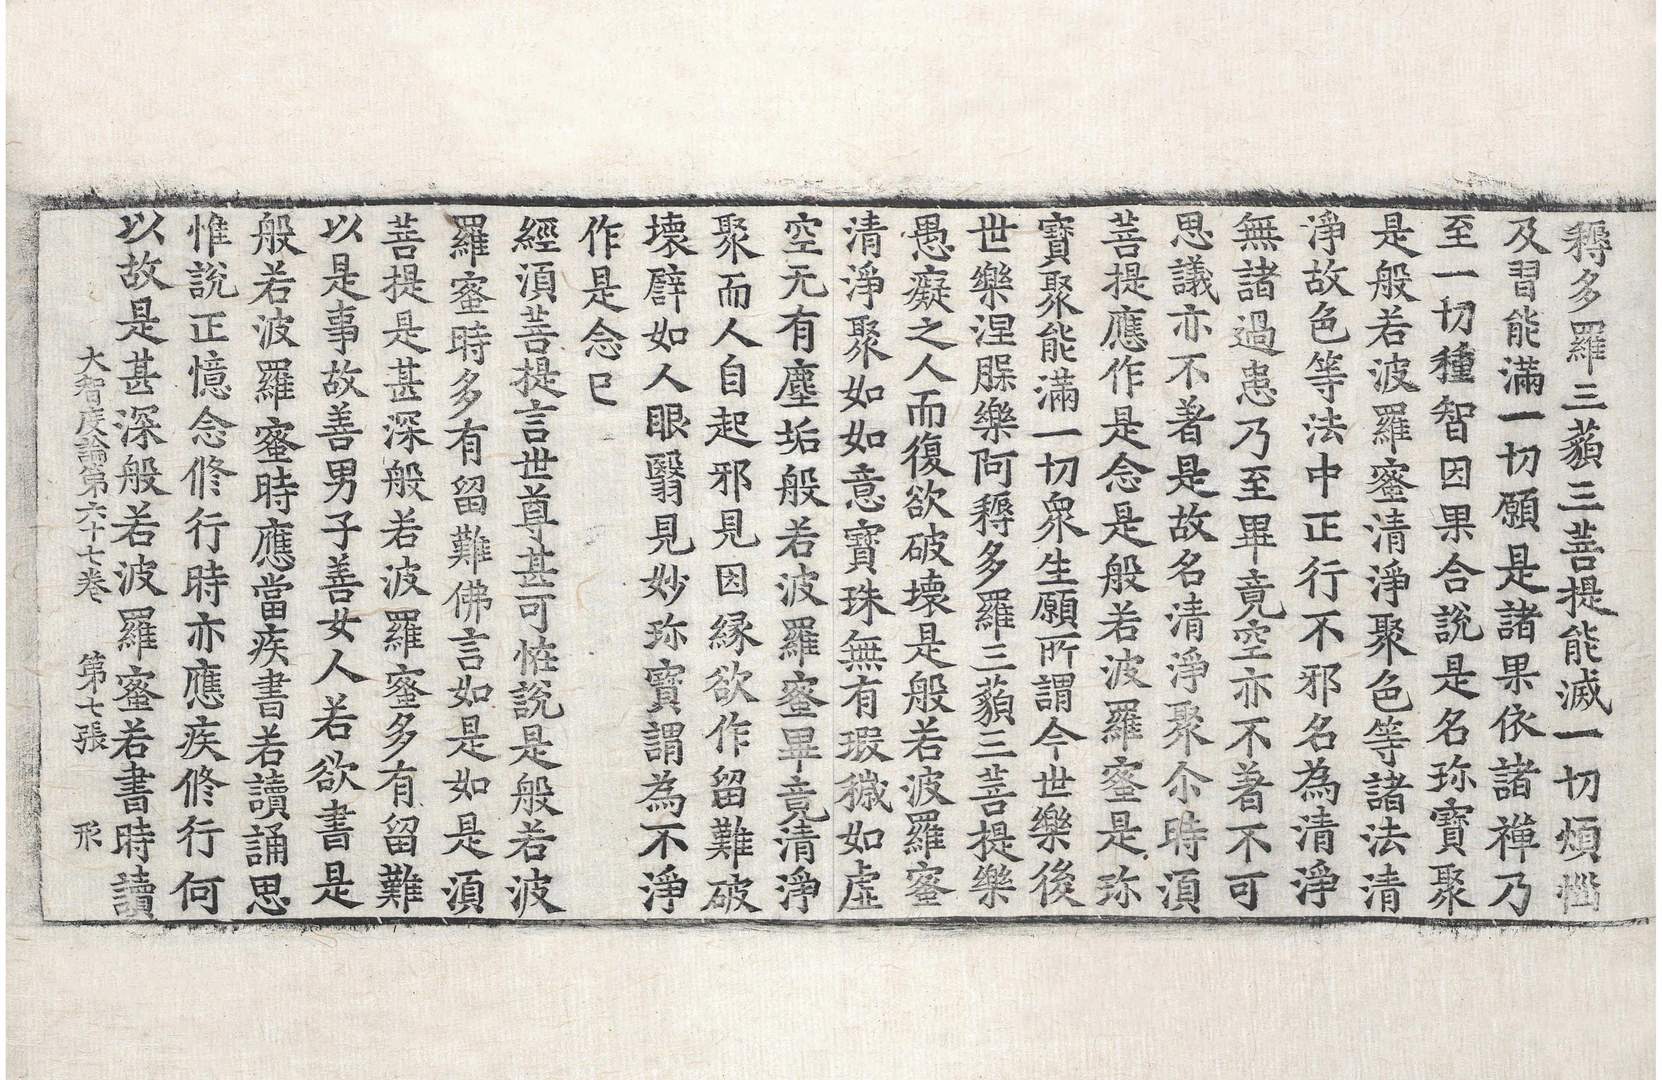 耨多羅三藐三菩提能滅一切煩惱
及習能滿一切願是諸果依諸禪乃
至一切種智因果合說是名珎寶聚
是般若波羅蜜清淨聚色等諸法清
淨故色等法中正行不邪名為清淨
無諸過患乃至畢竟空亦不著不可
思議亦不著是故名清淨聚尒時湏
菩提應作是念是般若波羅蜜是珎
寶聚能滿一切衆生願所謂今世樂後
世樂涅槃樂阿耨多羅三藐三菩提樂
愚癡之人而復欲破壞是般若波羅蜜
清淨聚如如意寶珠無有瑕穢如虛
空无有塵垢般若波羅蜜畢竟清淨
聚而人自起邪見因緣欲作留難破
壞譬如人眼翳見妙珎寶謂為不淨
作是念已
經湏菩提言世尊甚可恠說是般若波
羅蜜時多有留難佛言如是如是湏
菩提是甚深般若波羅蜜多有留難
以是事故善男子善女人若欲書是
般若波羅蜜時應當疾書若讀誦思
惟說正憶念修行時亦應疾修行何
以故是甚深般若波羅蜜若書時讀
大智度論第六十七卷　第七張　形